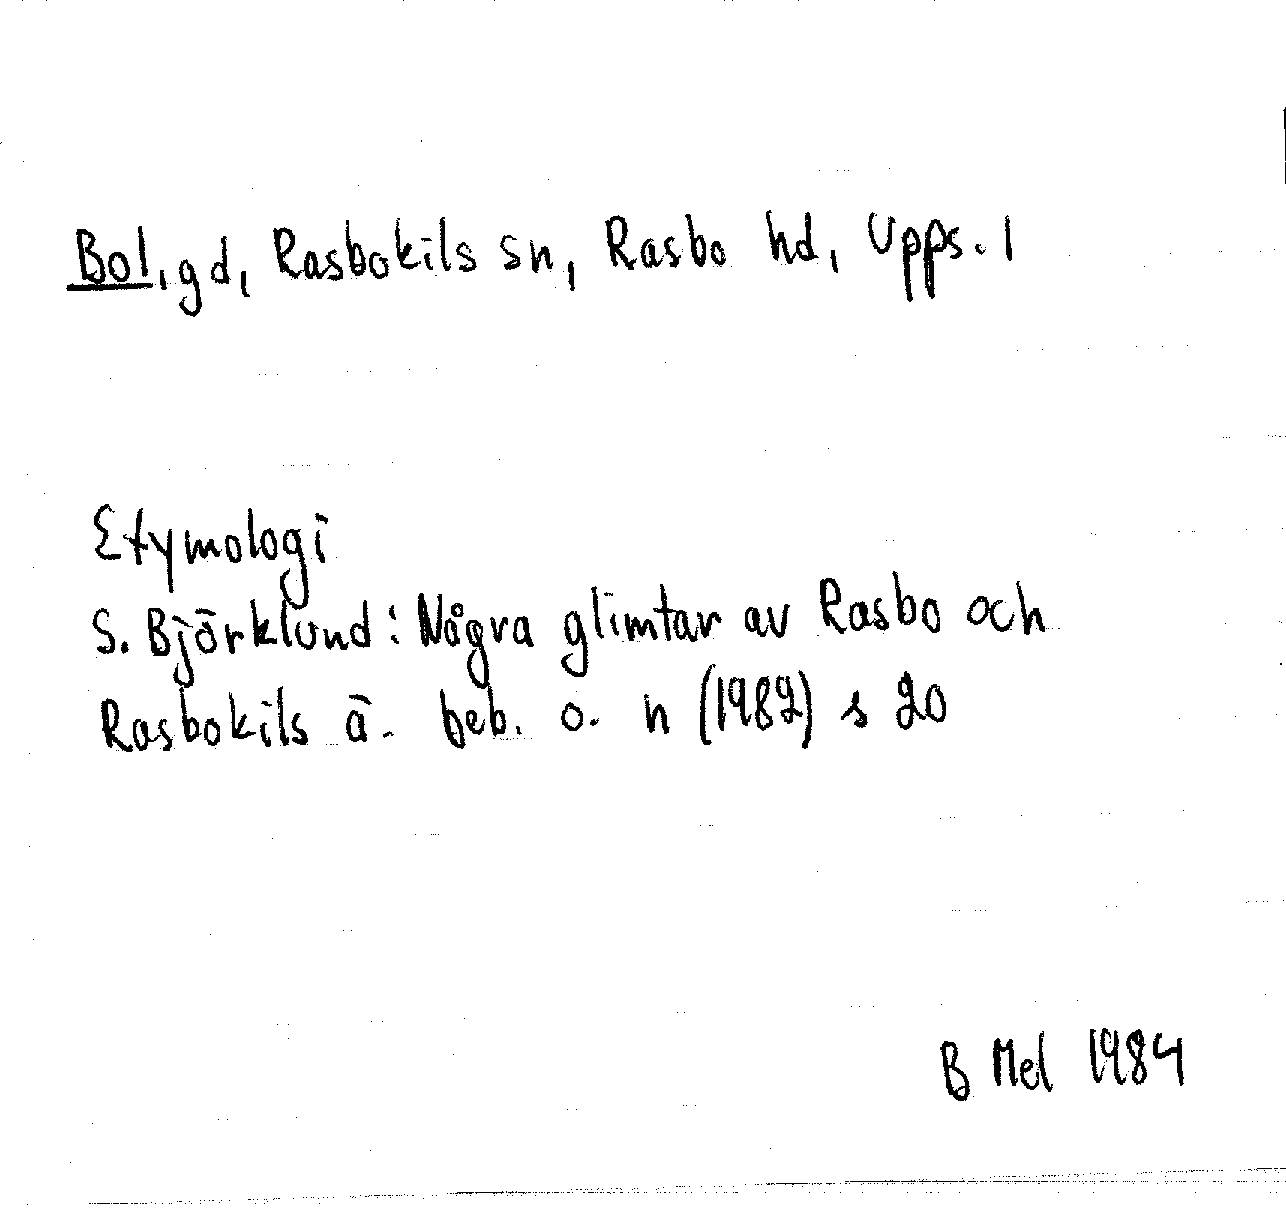 Bol, gd, Rasbokils sn, Rasbo hd, Upps. l
Etymologi
S. Björklund: Några glimtar av Rasbo och
Rasbokils ä. beb. o. n (1982) s 20
B Mel 1984